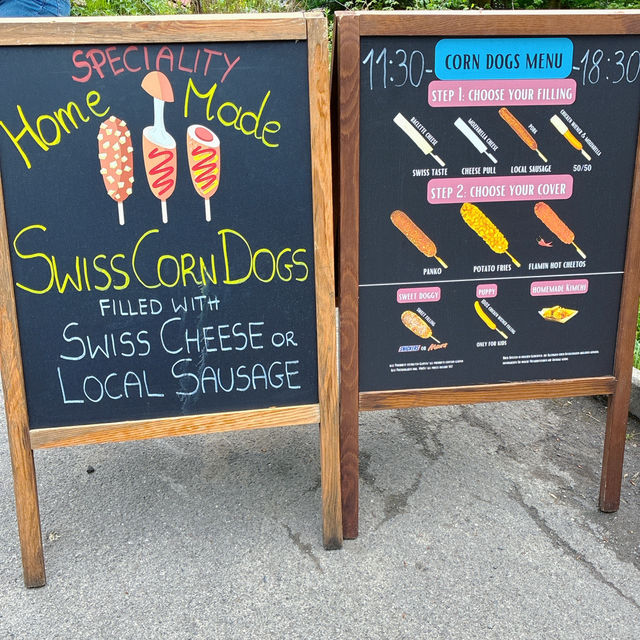 SPECIALITY
Home Made
SWISS CORN DOGS
FILLED WITH
SWISS CHEESE OR
LOCAL SAUSAGE
11:30-
CORN DOGS MENU
-18:30
STEP 1: CHOOSE YOUR FILLING
RACLETTE CHEESE
MOZZARELLA CHEESE
PORK
CHICKEN WIENER & MOZZARELLA
SWISS TASTE
CHEESE PULL
LOCAL SAUSAGE
50/50
STEP 2: CHOOSE YOUR COVER
PANKO
POTATO FRIES
FLAMIN HOT CHEETOS
SWEET DOGGY
PUPPY
HOMEMADE KIMCHI
SWEET FILLING
SNICKERS OR Mars
ONLY FOR KIDS